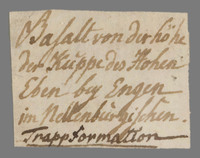 Basalt von der höhe
der Kuppe des Hohen
Eben bey Engen
im Nellenburgischen.
Trappformation